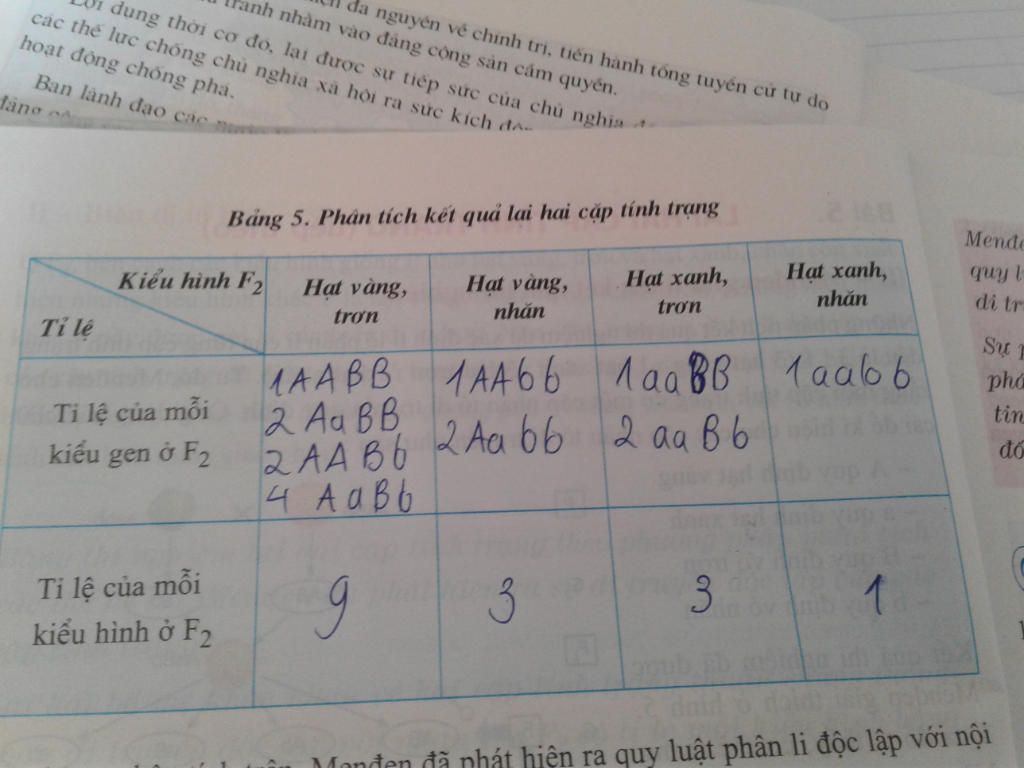 đa nguyên về chính trị, tiến hành tổng tuyển cử tự do
tranh nhằm vào đảng cộng sản cầm quyền.
Lợi dụng thời cơ đó, lại được sự tiếp sức của chủ nghĩa
các thế lực chống chủ nghĩa xã hội ra sức kích
hoạt động chống phá.
Ban lãnh đạo các
Bảng 5. Phân tích kết quả lai hai cặp tính trạng
Kiểu hình F2
Tỉ lệ
Hạt vàng,
trơn
Hạt vàng,
nhăn
Hạt xanh,
trơn
Hạt xanh,
nhăn
Tỉ lệ của mỗi
kiểu gen ở F2
1AABB
2 AaBB
2AABb
4 AaBb
1AAbb
2Aabb
1aaBB
2 aaBb
1aabb
Tỉ lệ của mỗi
kiểu hình ở F2
9
3
3
1
quy
di
Sự
đó
Menđen đã phát hiện ra quy luật phân li độc lập với nội